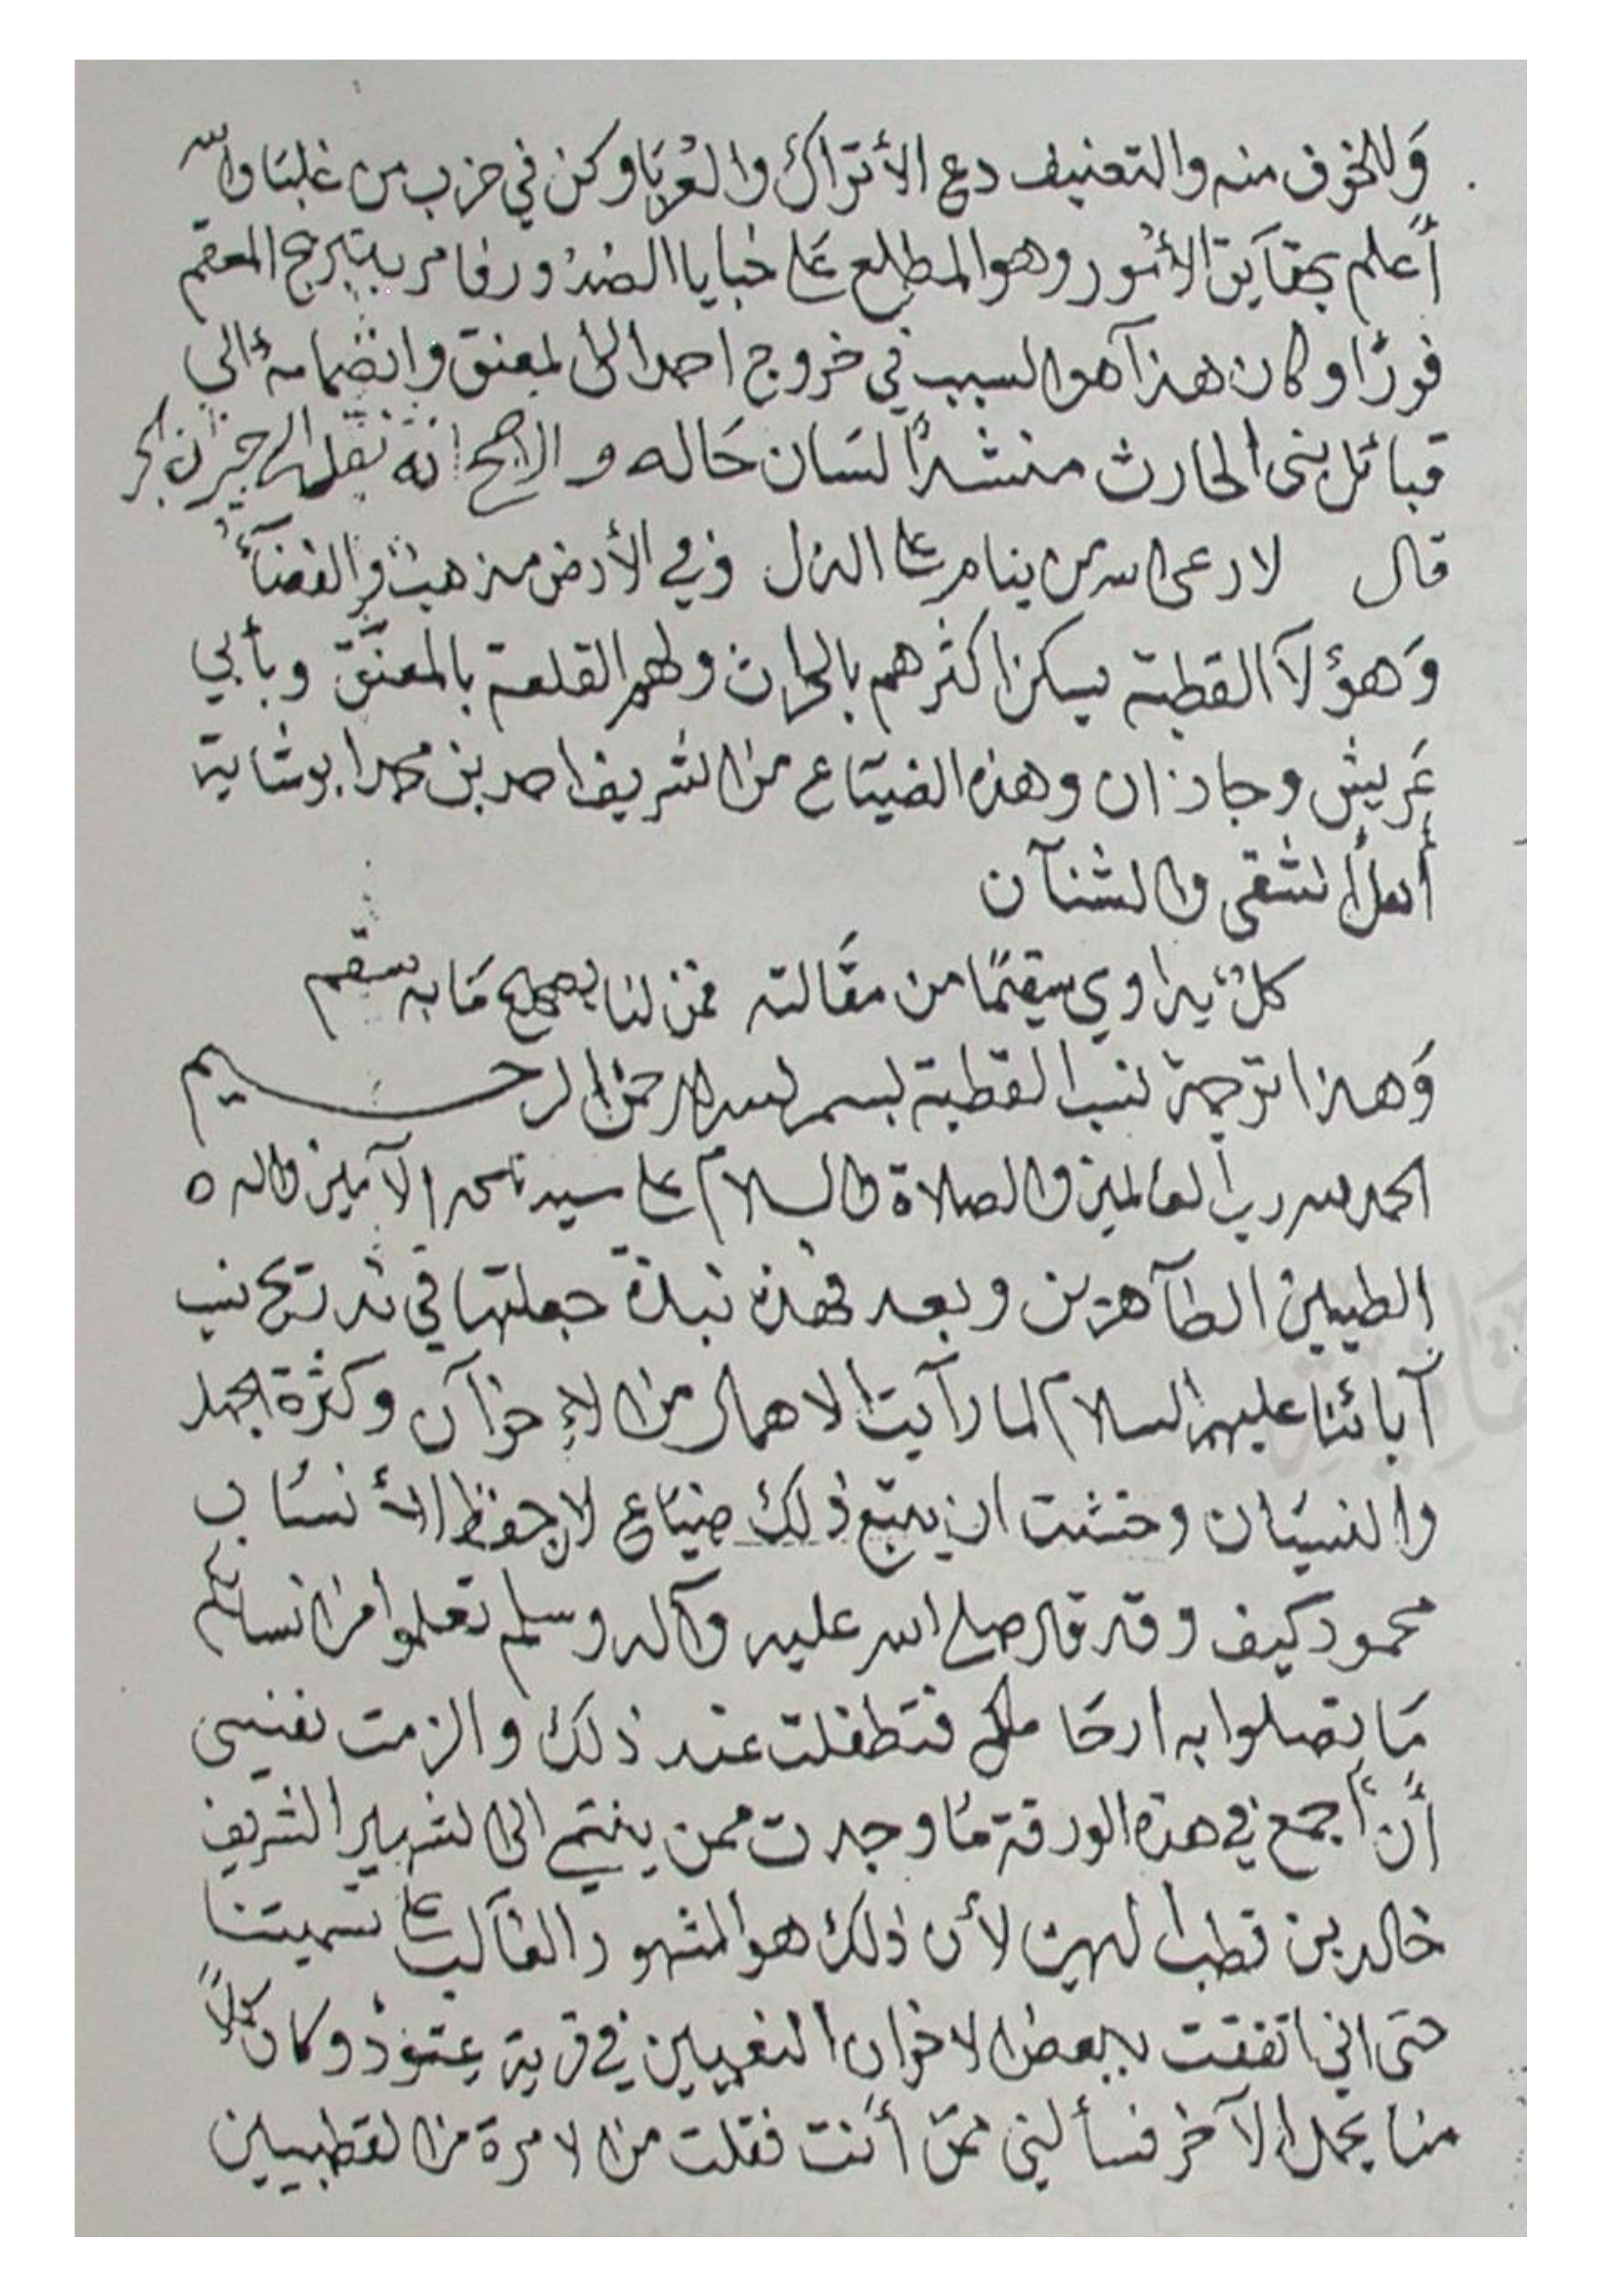 وللخوف منه والتعنيف دع الأتراك والعربا وكن في حزب من غلبا والله
أعلم بحقايق الأمور وهو المطلع على خبايا الصدور فأمر بتبريج المعقم
فورًا وكان هذا هو السبب في خروج احمد الى المعنق وانضمامه الى
قبائل بني الحارث منشدًا لسان حاله والاصح انه نقله الى
قال لا رعى الله من ينام على الذل وفي الأرض مذهب والفضآء
وهؤلآ القطبة يسكن اكثرهم بالحارث ولهم القلعة بالمعنّق وبأبي
عريش وجازان وهذه الضياع من الشريف احمد بن محمد ابو شاية
أهل الشقى والشنآن
كلٌ يداوي سقيمًا من مقالته فمن لنا بصحيح مابه سقم
وهذا ترجمة نسب القطبة بسم الله الرحمن الرحيم
الحمد لله رب العالمين والصلاة والسلام على سيدنا محمد الآمين واله ه
الطيبين الطآهرين وبعد فهذه نبذة جعلتها في تدريج نسب
آبائنا عليهم السلام لما رأيت الاهمال من الإخوآن وكثرة الجهل
والنسيان وخشت ان يتبع ذلك ضياع لان حفظ الأنساب
محمود كيف وقد قال صلى الله عليه وآله وسلم تعلموا من انسابكم
ما تصلوا به ارحامكم فتطفلت عند ذلك والزمت نفسي
أن أجمع في هذه الورقة ما وجدت ممن ينتمي الى الشهير الشريف
خالد بن قطب الدين لأن ذلك هو المشهور الغالب على تسميتنا
حتى اني اتفقت ببعض الاخوان النعميين في قرية عتود وكان كلاً
منا يجهل الآخر فسألني ممن أنت فقلت من الامرة من القطبيين